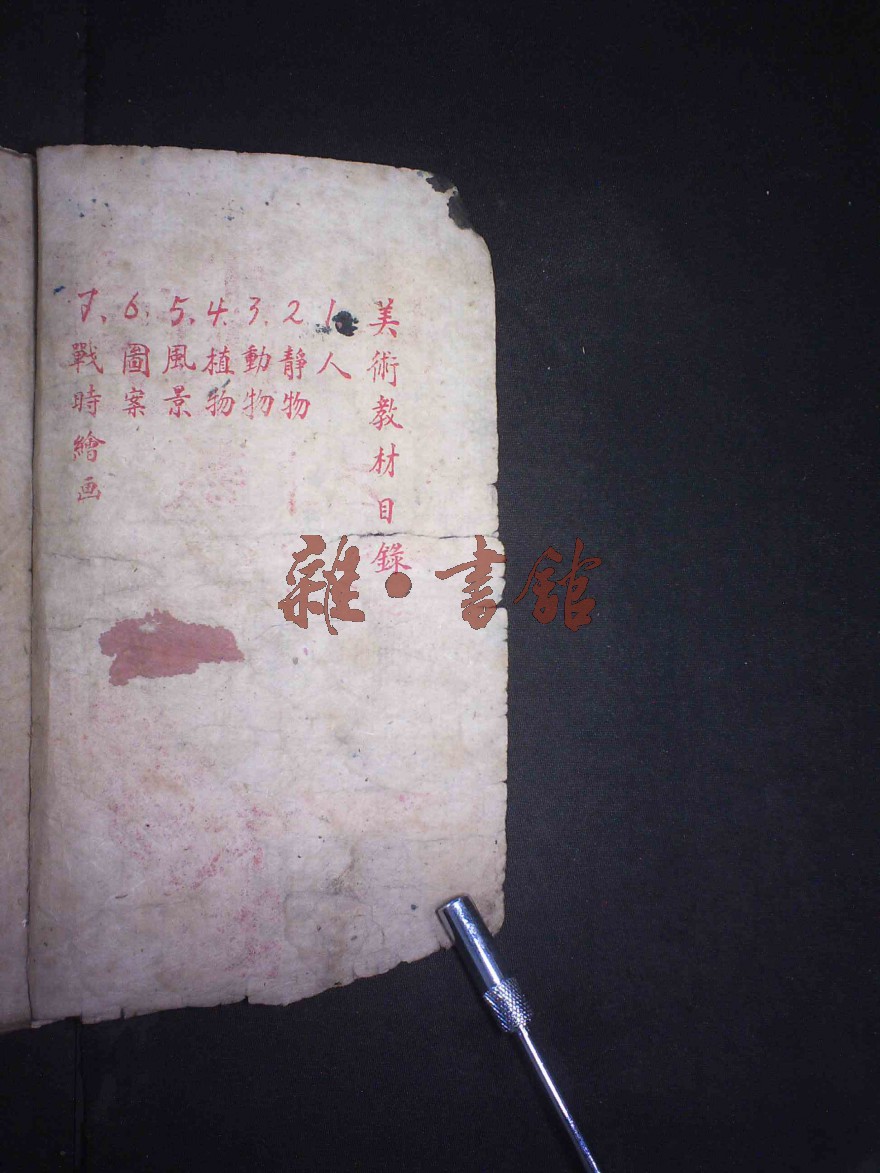 美術教材目錄
1. 人
2 静物
3. 動物
4. 植物
5. 風景
6. 圖案
7. 戰時繪画
雜·書館